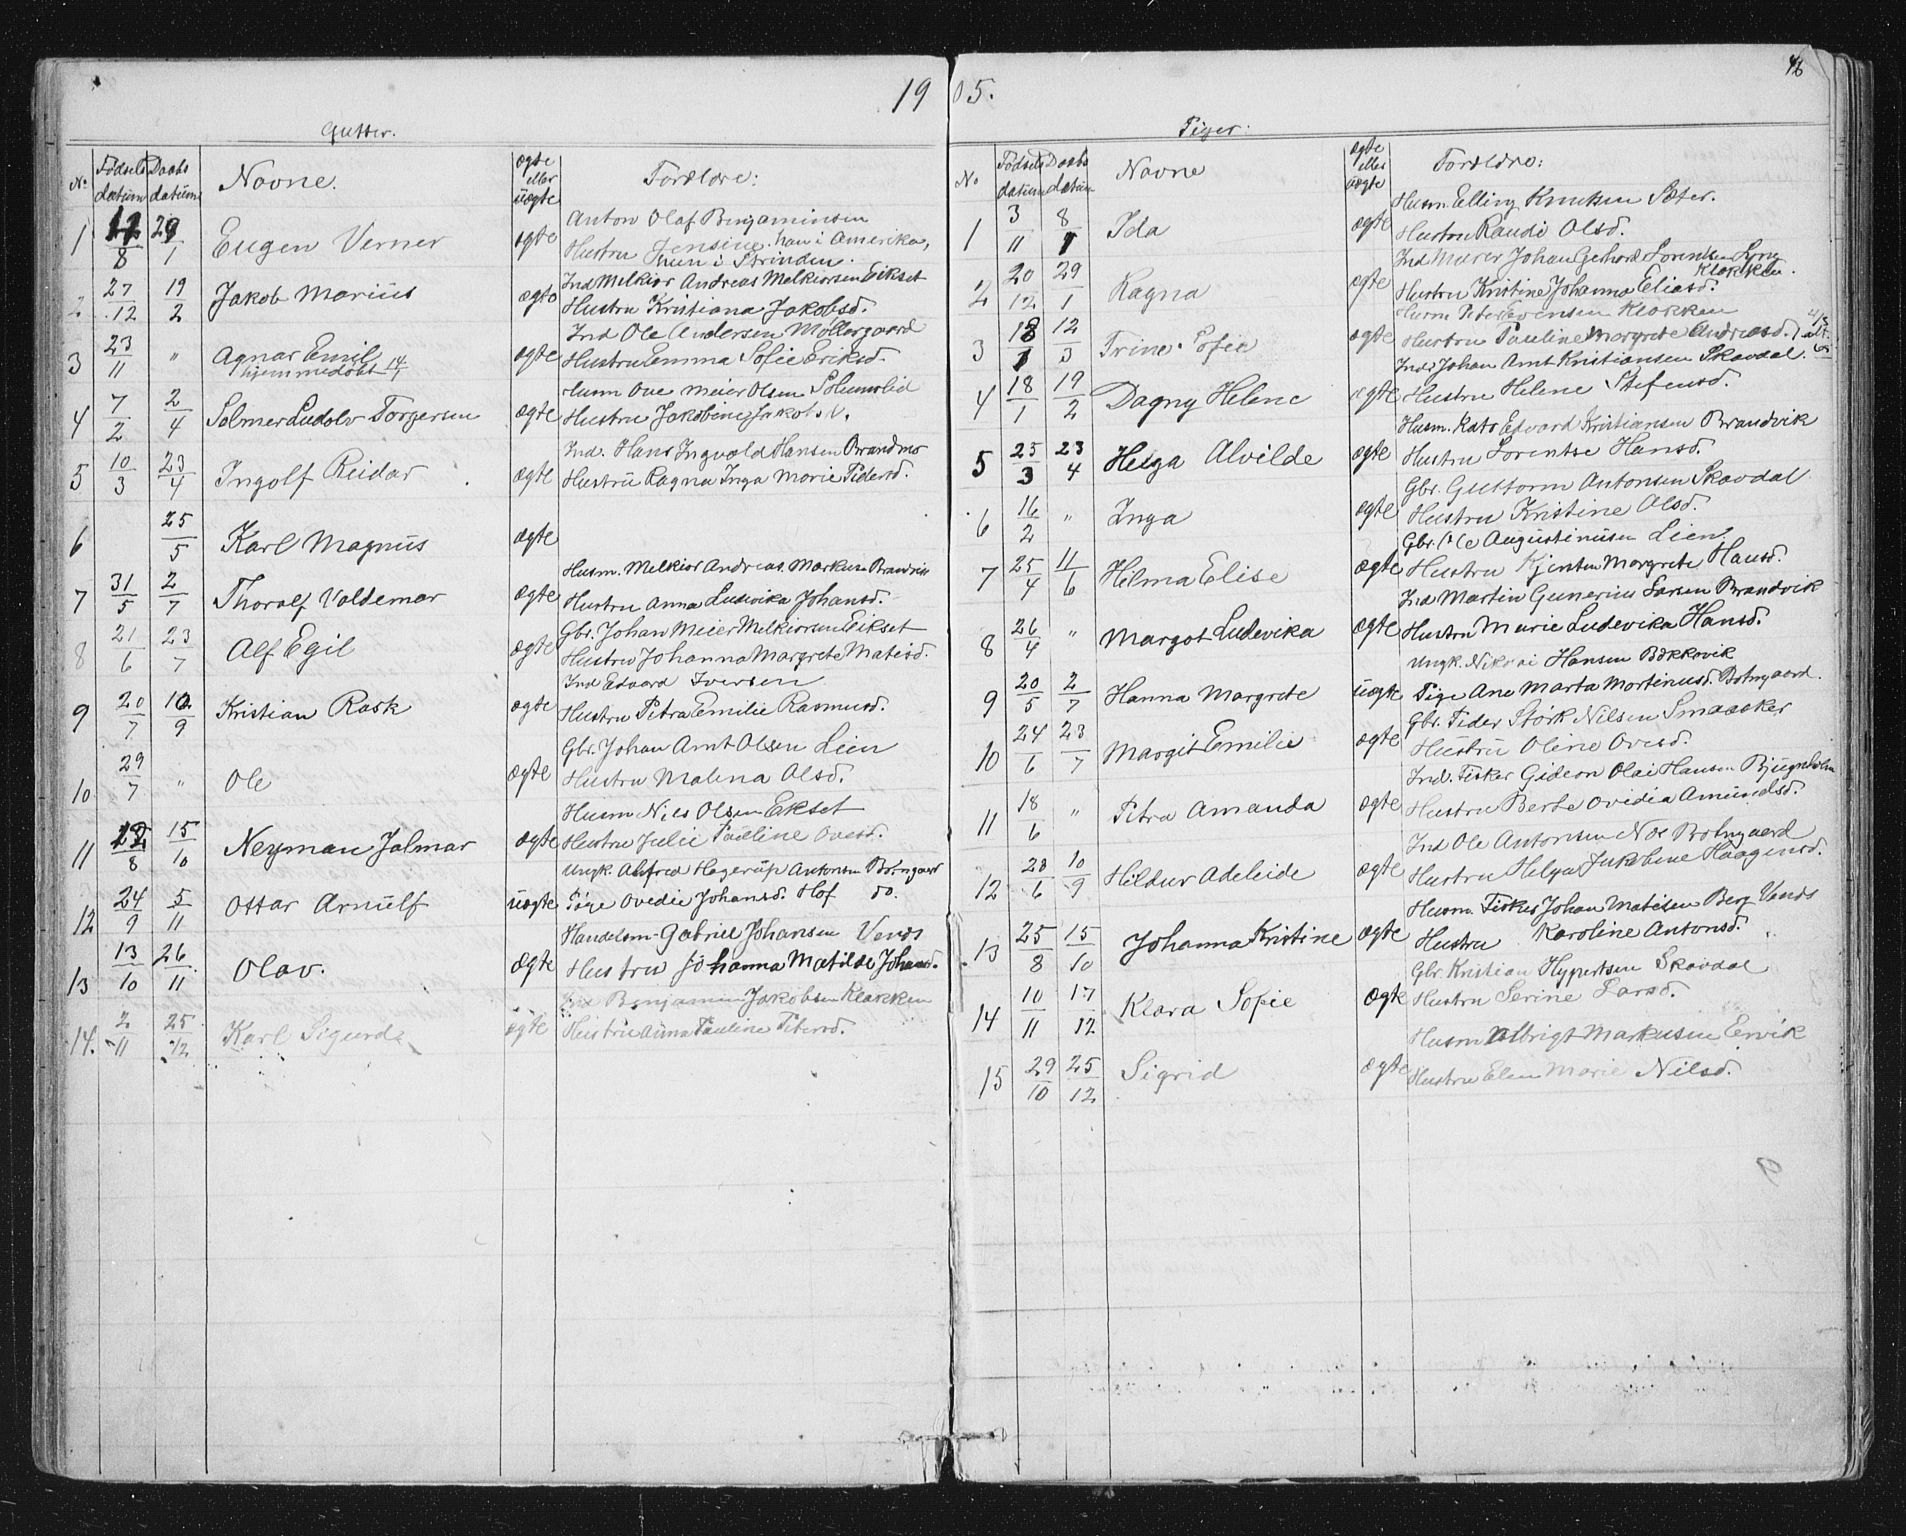 1905.
Gutter.
No Fødsels datum Daabs datum Navne. ægte eller uægte Forældre:
1 17/8 29/1 Eugen Verner ægte Anton Olaf Benjaminsen
Hustru Jensine. han i Amerika,
hun i Strinden.
2 27/12 19/2 Jakob Marius ægte Ind Melkior Andreas Melkiorsen Eikset
Hustru Kristiana Jakobsd.
3 23/11 " Agnar Emil ægte Ind Ole Andersen Møllergaard
hjemmedøbt 14/1 Hustru Emma Sofie Eriksd.
4 7/2 2/4 Solmer Ludolv Torgersen ægte Husm Ove Meier Olsen
Hustru Jakobine Jakobsd.
5 10/3 23/4 Ingolf Reidar ægte Ind. Hans Ingvald Hansen Brandmo
Hustru Ragna Inga Marie Pedersd.
6 25/5 Karl Magnus ægte
7 31/5 2/7 Thoralf Valdemar ægte Husm. Melkior Andreas Markusen Brandvik
Hustru Anna Ludevika Johansd.
8 21/6 23/7 Alf Egil ægte Gbr. Johan Meier Melkiorsen Eikset
Hustru Johanna Margrete Matisd.
9 20/7 10/9 Kristian Rask ægte Ind Edvard Iversen
Hustru Petra Emilie Rasmusd.
10 29/7 " Ole ægte Gbr. Johan Arnt Olsen Lien
Hustru Malena Olsd.
11 8 15/10 Neyman Jalmar ægte Husm Nils Olsen Ekset
Hustru Julie Pauline Ovesd.
12 24/9 5/11 Ottar Arnulf uægte Ungk. Alfred Hagerup Antonsen Botngaard
Pige Ovedie Johansd. Hof do.
13 13/10 26/11 Olav. ægte Handelsm. Gabriel Johansen Vends
Hustru Johanna Matilde Johansd.
14. 2/11 25/12 Karl Sigurd ægte Ind Benjamin Jakobsen Klakken
Hustru Anna Pauline Petersd.
Piger:
No Fødsels datum Daabs datum Navne ægte eller uægte Forældre:
1 3/11 8/1 Ida ægte Husm. Elling Knutsen Sæter.
Hustru Randi Olsd.
2 20/12 29/1 Ragna ægte Ind Murer Johan Gerhard Lorentsen Lyng
Klakken.
Hustru Kristine Johanna Eliasd.
3 18/1 12/3 Trine Sofie ægte Husm Peter Evensen Klakken
Hustru Pauline Margrete Andreasd.
4 18/1 19/2 Dagny Helene ægte Ind. Johan Arnt Kristiansen Skavdal.
Hustru Helene Stefensd.
5 25/3 23/4 Helga Alvilde ægte Husm. Kato Edvard Kristiansen Brandvik
Hustru Lorentse Hansd.
6 16/2 " Inga ægte Gbr. Guttorm Antonsen Skavdal
Hustru Kristine Olsd.
7 25/4 11/6 Hilma Elise ægte Gbr. Ole Augustinusen Lien.
Hustru Kjersten Margrete Hansd.
8 26/4 " Margot Ludevika ægte Ind Martin Gunerius Larsen Brandvik
Hustru Marie Ludevika Hansd.
9 20/5 2/7 Hanna Margrete uægte Ungk. Nikolai Hansen Bakkavik
Pige Ane Marta Martinusd. Botngaard.
10 24/6 23/7 Margit Emilie ægte Gbr. Peder Størk Nilsen Smaaaker
Hustru Oline Ovesd.
11 18/6 " Petra Amanda ægte Ind. Fisker Gideon Olai Hansen Bjugnholm
Hustru Berte Ovidia Amundsd.
12 28/6 10/9 Hildur Adeleide ægte Ind Ole Antonsen Noe Botngaard
Hustru Helga Jakobine Haagensd.
13 25/8 15/10 Johanna Kristine ægte Husm. Fisker Johan Matisen Berg Vends
Hustru Karoline Antonsd.
14 10/11 17/12 Klara Sofie ægte Gbr. Kristian Hypertsen Skavdal
Hustru Serine Larsd.
15 29/10 25/12 Sigrid ægte Husm Albrigt Markusen Ervik
Hustru Elen Marie Nilsd.